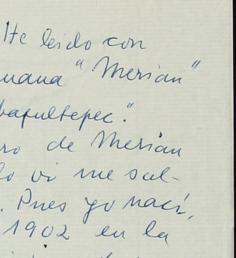 He leido con
mana "Merian"
bapultepec."
ro de Merian
lo vi me sal-
. Pues yo nací,
1902 en la